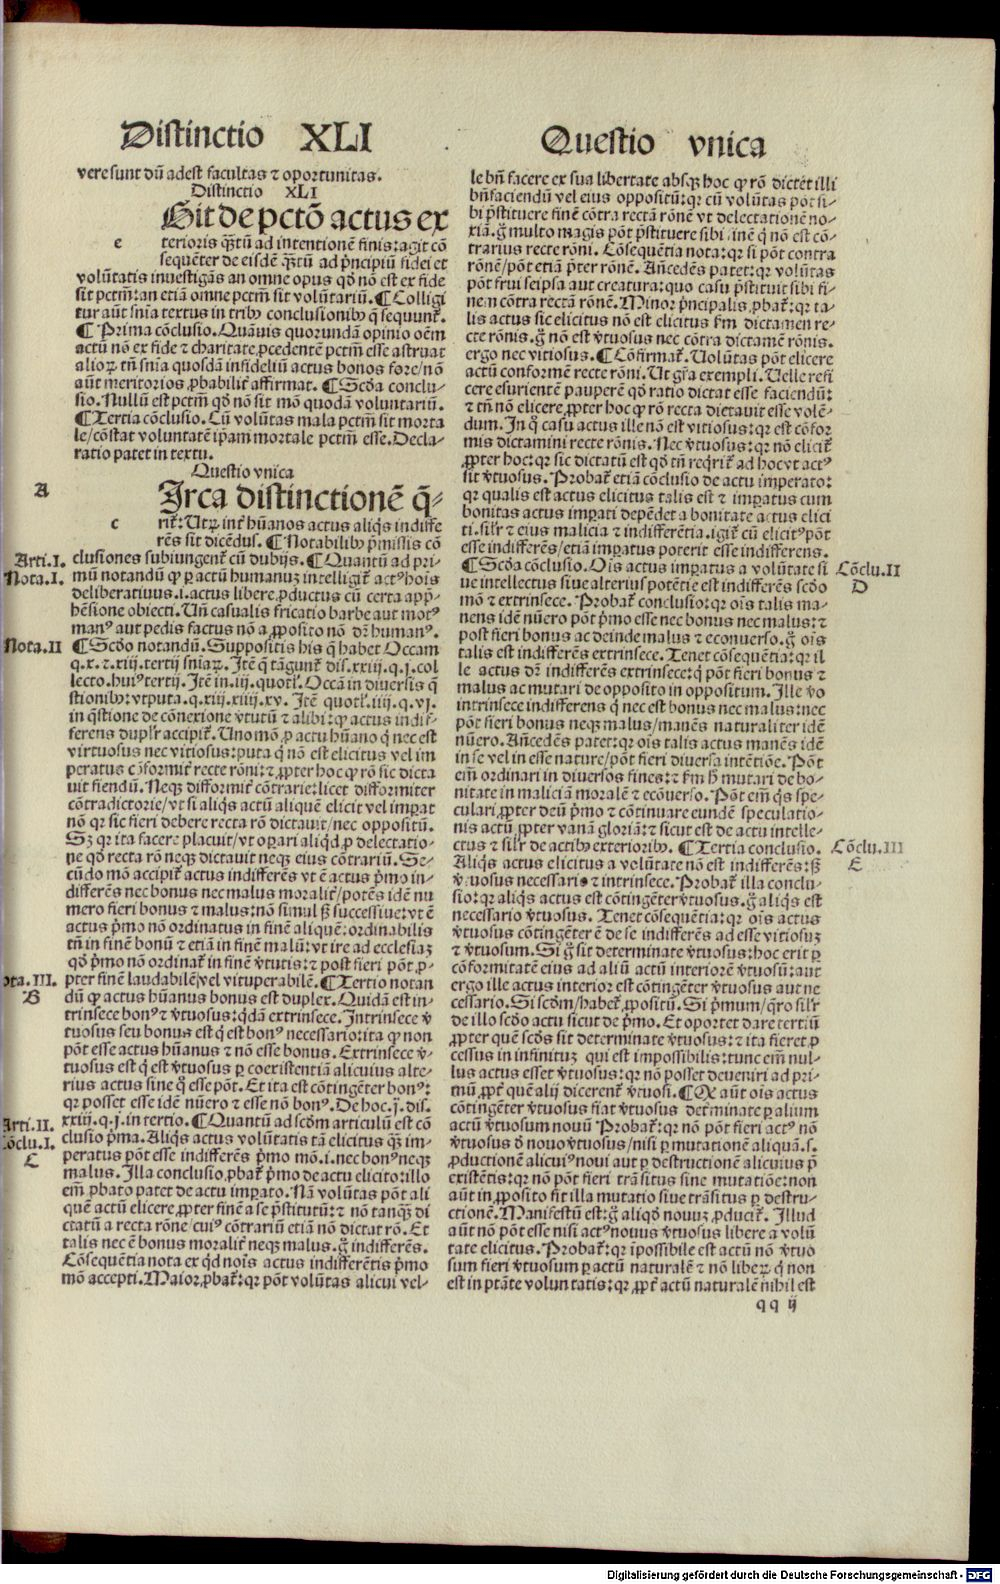 Distinctio XLI
Questio vnica
vere sunt dũ adest facultas ⁊ oportunitas.
Distinctio XLI
Sit de pctõ actus ex
e
terioris q̃tũ ad intentionẽ finis: agit cõ
sequẽter de eisdẽ q̃tũ ad p̃ncipiũ fidei et
volũtatis inuestigãs an omne opus qd̃ nõ est ex fide
sit pctm̃: an etiã omne pctm̃ sit volũtariũ. ¶ Colligi
tur aũt snĩa textus in tribꝰ conclusionibꝰ q̃ sequunt̃.
¶ Prima cõclusio. Quãuis quorundã opinio oẽm
actũ nõ ex fide ⁊ charitate ꝓcedentẽ pctm̃ esse astruat
alioꝝ tñ snĩa quosdã infideliũ actus bonos fore/nõ
aũt meritorios ꝓbabilit̃ affirmat. ¶ Scd̃a conclu-
sio. Nullũ est pctm̃ qd̃ nõ sit mõ quodã voluntariũ.
¶ Tertia cõclusio. Cũ volũtas mala pctm̃ sit morta
le/cõstat voluntatẽ ip̃am mortale pctm̃ esse. Decla-
ratio patet in textu.
Questio vnica
A
Circa distinctionẽ q̃-
c
rit̃: Utꝝ int̃ hũanos actus aliq̃s indiffe
rẽs sit dicẽdus. ¶ Notabilibꝰ p̃missis cõ
Arti. I.
clusiones subiungent̃ cũ dubijs. ¶ Quantũ ad pri-
Nota. I.
mũ notandũ ꝙ ꝑ actũ humanuz intelligit̃ actꝰ hoĩs
deliberatiuus .i. actus libere ꝓductus cũ certa app̃-
hẽsione obiecti. Uñ casualis fricatio barbe aut motꝰ
manꝰ aut pedis factus nõ a ꝓposito nõ dr̃ humanꝰ.
Nota. II
¶ Scd̃o notandũ. Suppositis his q̃ habet Occam
q. x. ⁊ .xiij. tertij snĩaꝝ. Itẽ q̃ tãgunt̃ dis. xxiij. q. j. col
lecto. huiꝰ tertij. Itẽ in .iij. quotl̃. Occã in diuersis q̃
stionibꝰ: vtputa. q. xiij. xiiij. xv. Itẽ quotl̃. iij. q. vj.
in q̃stione de cõnexione v̓tutũ ⁊ alibi: ꝙ actus indif-
ferens dupl̃r accipit̃. Uno mõ ꝓ actu hũano q̃ nec est
virtuosus nec vitiosus: puta q̃ nõ est elicitus vel im
peratus cõformit̃ recte rõni: ⁊ ꝓpter hoc ꝙ rõ sic dicta
uit fiendũ. Neqꝫ difformit̃ cõtrarie: licet difformiter
cõtradictorie/vt si aliq̃s actũ aliquẽ elicit vel imꝑat
nõ qꝛ sic fieri debere recta rõ dictauit/nec oppositũ.
Sꝫ qꝛ ita facere placuit/vt oꝑari aliqd̃ ꝓ delectatio-
ne qd̃ recta rõ neqꝫ dictauit neqꝫ eius cõtrariũ. Se-
cũdo mõ accipit̃ actus indifferẽs vt ẽ actus p̃mo in-
differẽs nec bonus nec malus moralit̃/potẽs idẽ nu
mero fieri bonus ⁊ malus: nõ simul sꝫ successiue: vt ẽ
actus p̃mo nõ ordinatus in finẽ aliquẽ: ordinabilis
tñ in finẽ bonũ ⁊ etiã in finẽ malũ: vt ire ad ecclesiaz
qd̃ p̃mo nõ ordinat̃ in finẽ v̓tutis: ⁊ post fieri põt ꝓ-
ota. III.
pter finẽ laudabilẽ/vel vituperabilẽ. ¶ Tertio notan
B
dũ ꝙ actus hũanus bonus est duplex. Quidã est in-
trinsece bonꝰ ⁊ v̓tuosus: q̃dã extrinsece. Intrinsece v̓
tuosus seu bonus est q̃ est bonꝰ necessario: ita ꝙ non
põt esse actus hũanus ⁊ nõ esse bonus. Extrinsece v̓-
tuosus est q̃ est v̓tuosus ꝑ coexistentiã alicuius alte-
rius actus sine q̃ esse põt. Et ita est cõtingẽter bonꝰ:
qꝛ posset esse idẽ nũero ⁊ esse nõ bonꝰ. De hoc. j. dis.
Arti. II.
xxiij. q. j. in tertio. ¶ Quantũ ad scd̃m articulũ est cõ
Cõclu. I.
clusio p̃ma. Aliq̃s actus volũtatis tã elicitus q̃ꝫ im-
C
peratus põt esse indifferẽs p̃mo mõ .i. nec bonꝰ neqꝫ
malus. Illa conclusio ꝓbat̃ p̃mo de actu elicito: illo
em̃ ꝓbato patet de actu imꝑato. Nã volũtas põt ali
quẽ actũ elicere ꝓpter finẽ a se p̃stitutũ: ⁊ nõ tanqꝫ di
ctatũ a recta rõne/cuiꝰ cõtrariũ etiã nõ dictat rõ. Et
talis nec ẽ bonus moralit̃ neqꝫ malus. g̃ indifferẽs.
Cõsequẽtia nota ex q̃d noĩs actus indifferẽtis p̃mo
mõ accepti. Maior ꝓbat̃: qꝛ põt volũtas alicui vel-
le bñ facere ex sua libertate absqꝫ hoc ꝙ rõ dictet illi
bñfaciendũ vel eius oppositũ: qꝛ cũ volũtas põt si-
bi p̃stituere finẽ cõtra rectã rõnẽ vt delectationẽ no-
xiã. g̃ multo magis põt p̃stituere sibi finẽ q̃ nõ est cõ-
trarius recte rõni. Cõsequẽtia nota: qꝛ si põt contra
rõnẽ/põt etiã p̃ter rõnẽ. Añcedẽs patet: qꝛ volũtas
põt frui seipsa aut creatura: quo casu p̃stituit sibi fi-
nem cõtra rectã rõnẽ. Minor p̃ncipalis ꝓbat̃: qꝛ ta-
lis actus sic elicitus nõ est elicitus fm̃ dictamen re-
cte rõnis. g̃ nõ est v̓tuosus nec cõtra dictamẽ rõnis.
ergo nec vitiosus. ¶ Cõfirmat̃. Uolũtas põt elicere
actũ conformẽ recte rõni. Ut gr̃a exempli. Uelle refi
cere esurientẽ pauperẽ qd̃ ratio dictat esse faciendũ:
⁊ tñ nõ elicere ꝓpter hoc ꝙ rõ recta dictauit esse volẽ-
dum. In q̃ casu actus ille nõ est vitiosus: qꝛ est cõfor
mis dictamini recte rõnis. Nec v̓tuosus: qꝛ nõ elicit̃
ꝓpter hoc: qꝛ sic dictatũ est qd̃ tñ req̃rit̃ ad hoc vt actꝰ
sit v̓tuosus. Probat̃ etiã cõclusio de actu imperato:
qꝛ qualis est actus elicitus talis est ⁊ imꝑatus cum
bonitas actus imꝑati depẽdet a bonitate actus elici
ti. sil̃r ⁊ eius malicia ⁊ indifferẽtia. igit̃ cũ elicitꝰ põt
esse indifferẽs/etiã imꝑatus poterit esse indifferens.
¶ Scd̃a cõclusio. Oĩs actus imꝑatus a volũtate si
Cõclu. II
ue intellectus siue alterius potẽtie est indifferẽs scd̃o
D
mõ ⁊ extrinsece. Probat̃ conclusio: qꝛ oĩs talis ma-
nens idẽ nũero põt p̃mo esse nec bonus nec malus: ⁊
post fieri bonus ac deinde malus ⁊ econuerso. g̃ oĩs
talis est indifferẽs extrinsece. Tenet cõsequẽtia: qꝛ il
le actus dr̃ indifferẽs extrinsece: q̃ põt fieri bonus ⁊
malus ac mutari de opposito in oppositum. Ille v̓o
intrinsece indifferens q̃ nec est bonus nec malus: nec
põt fieri bonus neqꝫ malus/manẽs naturaliter idẽ
nũero. Añcedẽs patet: qꝛ oĩs talis actus manẽs idẽ
in se vel in esse nature/põt fieri diuersa intẽtiõe. Põt
em̃ ordinari in diuersos fines: ⁊ fm̃ h̃ mutari de bo-
nitate in maliciam moralẽ ⁊ ecõuerso. Põt em̃ q̃s spe-
culari ꝓpter deũ p̃mo ⁊ cõtinuare eundẽ speculatio-
nis actũ ꝓpter vanã gloriã: ⁊ sicut est de actu intelle-
ctus ⁊ sil̃r de actibꝰ exterioribꝰ. ¶ Tertia conclusio.
Cõclu. III
Aliq̃s actus elicitus a volũtate nõ est indifferẽs: sꝫ
E
v̓tuosus necessario ⁊ intrinsece. Probat̃ illa conclu-
sio: qꝛ aliq̃s actus est cõtingẽter v̓tuosus. g̃ aliq̃s est
necessario v̓tuosus. Tenet cõsequẽtia: qꝛ oĩs actus
v̓tuosus cõtingẽter ẽ de se indifferẽs ad esse vitiosuz
⁊ v̓tuosum. Si g̃ sit determinate v̓tuosus: hoc erit ꝑ
cõformitatẽ eius ad aliũ actũ interiorẽ v̓tuosũ: aut
ergo ille actus interior est cõtingẽter v̓tuosus aut ne
cessario. Si scd̃m/habet̃ ꝓpositũ. Si p̃mum/q̃ro sil̃r
de illo scd̃o actu sicut de p̃mo. Et oportet dare tertiũ
ꝓpter quẽ scd̃s sit determinate v̓tuosus: ⁊ ita fieret ꝓ
cessus in infinituz qui est impossibilis: tunc em̃ nul-
lus actus esset v̓tuosus: qꝛ nõ posset deueniri ad pri-
mũ ꝓpt̃ quẽ alij dicerent̃ v̓tuosi. ¶ Ꝙ aũt oĩs actus
cõtingẽter v̓tuosus fiat v̓tuosus det̃minate ꝑ alium
actũ v̓tuosum nouũ Probat̃: qꝛ nõ põt fieri actꝰ nõ
v̓tuosus d̃ nouo v̓tuosus/nisi ꝑ mutationẽ aliquã .s.
ꝓductionẽ alicuiꝰ noui aut ꝑ destructionẽ alicuius p̃
existẽtis: qꝛ nõ põt fieri trãsitus sine mutatiõe: non
aũt in ꝓposito fit illa mutatio siue trãsitus ꝑ destru-
ctionẽ. Manifestũ est: g̃ aliqd̃ nouuz ꝓducit̃. Illud
aũt nõ põt esse nisi actꝰ nouus v̓tuosus libere a volũ
tate elicitus. Probat̃: qꝛ ĩpossibile est actũ nõ v̓tuo
sum fieri v̓tuosum ꝑ actũ naturalẽ ⁊ nõ libeꝝ q̃ non
est in ptãte voluntatis: qꝛ ꝓpt̃ actũ naturalẽ nihil est
qq ij
Digitalisierung gefördert durch die Deutsche Forschungsgemeinschaft - DFG